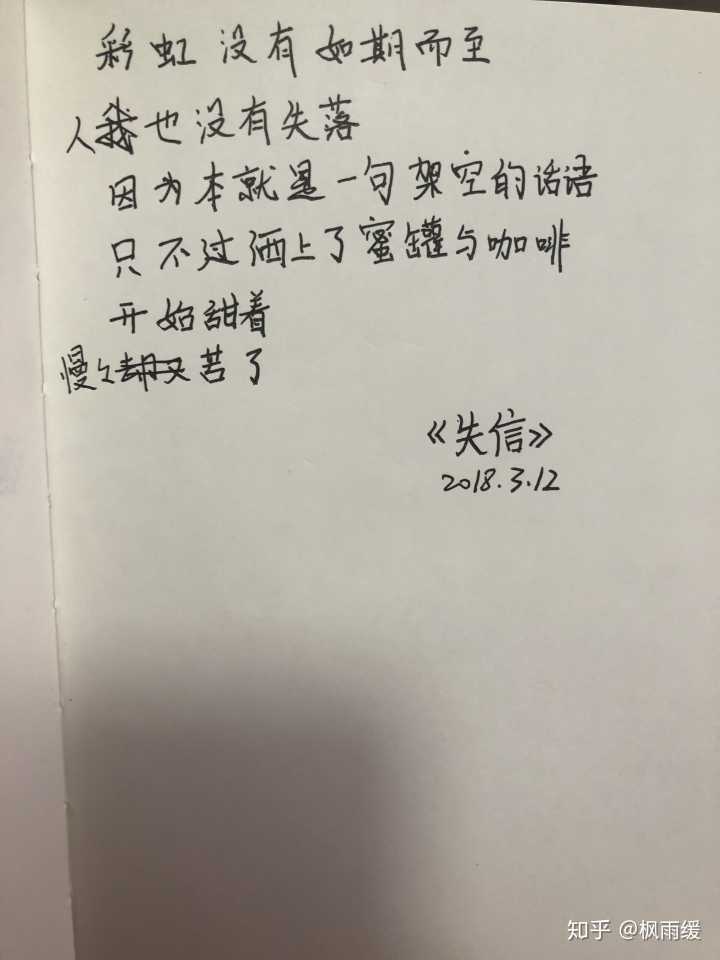 彩虹没有如期而至
人也没有失落
因为本就是一句架空的话语
只不过洒上了蜜罐与咖啡
开始甜着
慢々苦了
《失信》
2018.3.12
知乎 @枫雨缓